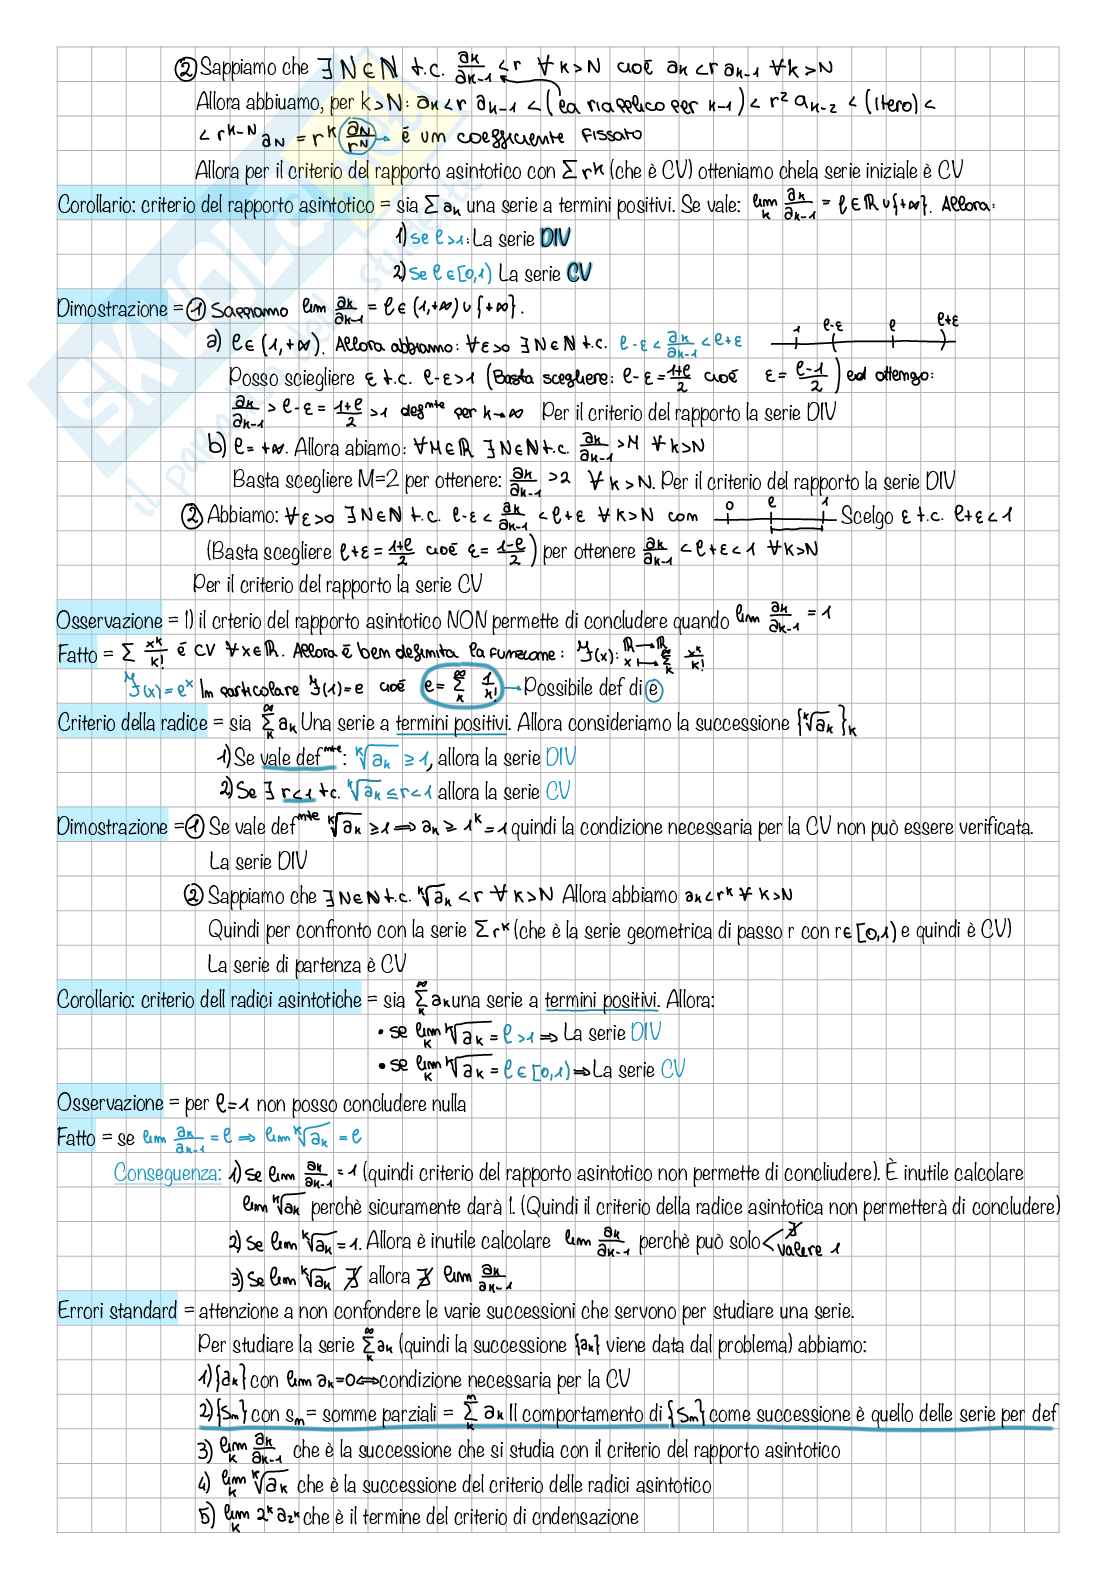 ② Sappiamo che ∃ N ∈ ℕ t.c. ak/ak-1 < r ∀ k > N cioé ak < r ak-1 ∀ k > N
Allora abbiuamo, per k > N: ak < r ak-1 < (la riapplico per k-1) < r² ak-2 < (itero) <
< r^k-N aN = r^k (aN/r^N) → é um coefficiente fissato
Allora per il criterio del rapporto asintotico con Σ r^k (che è CV) otteniamo chela serie iniziale è CV
Corollario: criterio del rapporto asintotico = sia Σ ak una serie a termini positivi. Se vale: lim k ak/ak-1 = ℓ ∈ ℝ ∪ {+∞}. Allora:
1) se ℓ > 1: La serie DIV
2) Se ℓ ∈ [0,1) La serie CV
Dimostrazione = ① Sappiamo lim ak/ak-1 = ℓ ∈ (1,+∞) ∪ {+∞}.
a) ℓ ∈ (1,+∞). Allora abbiamo: ∀ ε>0 ∃ N ∈ ℕ t.c. ℓ-ε < ak/ak-1 < ℓ+ε 1 ℓ-ε ℓ ℓ+ε
Posso sciegliere ε t.c. ℓ-ε > 1 (Basta scegliere: ℓ-ε = 1+ℓ/2 cioé ε = ℓ-1/2) ed ottengo:
ak/ak-1 > ℓ-ε = 1+ℓ/2 > 1 def^mte per k→∞ Per il criterio del rapporto la serie DIV
b) ℓ = +∞. Allora abiamo: ∀ M ∈ ℝ ∃ N ∈ ℕ t.c. ak/ak-1 > M ∀ k > N
Basta scegliere M=2 per ottenere: ak/ak-1 > 2 ∀ k > N. Per il criterio del rapporto la serie DIV
② Abbiamo: ∀ ε>0 ∃ N ∈ ℕ t.c. ℓ-ε < ak/ak-1 < ℓ+ε ∀ k > N com 0 ℓ 1 Scelgo ε t.c. ℓ+ε < 1
(Basta scegliere ℓ+ε = 1+ℓ/2 cioé ε = 1-ℓ/2) per ottenere ak/ak-1 < ℓ+ε < 1 ∀ k > N
Per il criterio del rapporto la serie CV
Osservazione = 1) il crterio del rapporto asintotico NON permette di concludere quando lim ak/ak-1 = 1
Fatto = Σ x^k/k! é CV ∀ x ∈ ℝ. Allora é ben definita la funzione: f(x): ℝ → ℝ x ↦ Σ^∞ k x^k/k!
f(x) = e^x Im particolare f(1) = e cioé e = Σ^∞ k 1/k! → Possibile def di e
Criterio della radice = sia Σ^∞ k ak Una serie a termini positivi. Allora consideriamo la successione {ᵏ√ak}k
1) Se vale def^mte: ᵏ√ak ≥ 1, allora la serie DIV
2) Se ∃ r<1 t.c. ᵏ√ak ≤ r < 1 allora la serie CV
Dimostrazione = ① Se vale def^mte ᵏ√ak ≥ 1 ⟹ ak ≥ 1^k = 1 quindi la condizione necessaria per la CV non può essere verificata.
La serie DIV
② Sappiamo che ∃ N ∈ ℕ t.c. ᵏ√ak < r ∀ k > N Allora abbiamo ak < r^k ∀ k > N
Quindi per confronto con la serie Σ r^k (che è la serie geometrica di passo r con r ∈ [0,1) e quindi è CV)
La serie di partenza è CV
Corollario: criterio dell radici asintotiche = sia Σ^∞ k ak una serie a termini positivi. Allora:
• se lim k ᵏ√ak = ℓ > 1 ⟹ La serie DIV
• se lim k ᵏ√ak = ℓ ∈ [0,1) ⟹ La serie CV
Osservazione = per ℓ=1 non posso concludere nulla
Fatto = se lim ak/ak-1 = ℓ ⟹ lim ᵏ√ak = ℓ
Conseguenza: 1) Se lim ak/ak-1 = 1 (quindi criterio del rapporto asintotico non permette di concliudere). È inutile calcolare
lim ᵏ√ak perchè sicuramente darà 1. (Quindi il criterio della radice asintotica non permetterà di concludere)
2) Se lim ᵏ√ak = 1. Allora è inutile calcolare lim ak/ak-1 perchè può solo < ∄ valere 1
3) Se lim ᵏ√ak ∄ allora ∄ lim ak/ak-1
Errori standard = attenzione a non confondere le varie successioni che servono per studiare una serie.
Per studiare la serie Σ^∞ k ak (quindi la successione {ak} viene data dal problema) abbiamo:
1) {ak} con lim ak=0 ⟺ condizione necessaria per la CV
2) {Sm} con sm = somme parziali = Σ^m k ak Il comportamento di {Sm} come successione è quello delle serie per def
3) lim k ak/ak-1 che è la successione che si studia con il criterio del rapporto asintotico
4) lim k ᵏ√ak che è la successione del criterio delle radici asintotico
5) lim k 2^k a2^k che è il termine del criterio di cndensazione